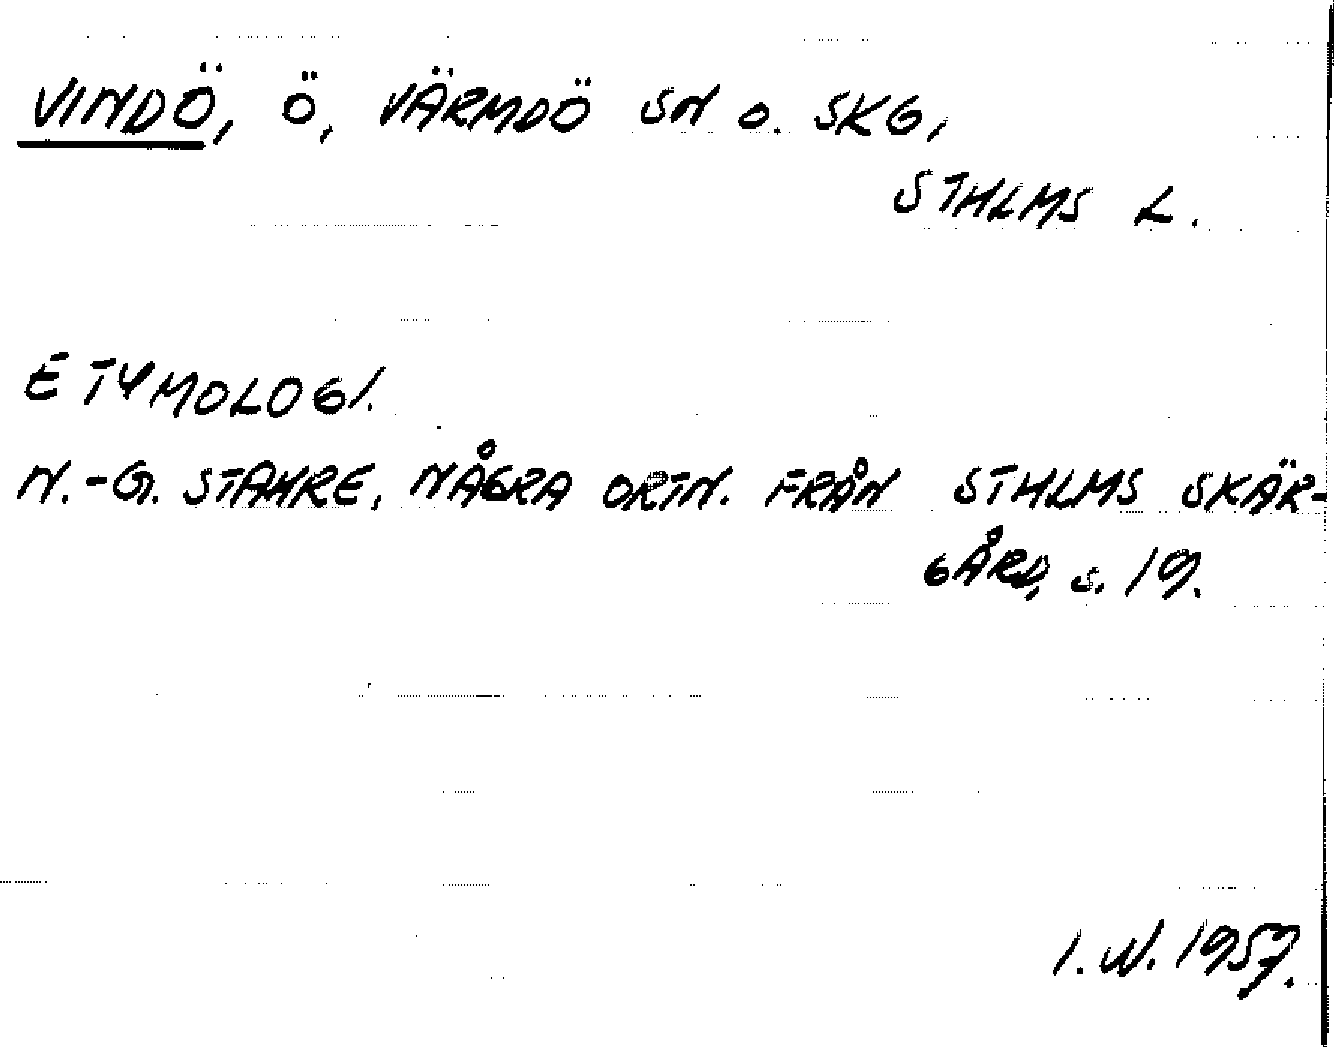 VINDÖ, Ö, VÄRMDÖ SN O. SKG,
STHLMS L.
ETYMOLOGI.
N.-G. STAHRE, NÅGRA ORTN. FRÅN STHLMS SKÄR-
GÅRD, S. 19.
I. W. 1957.